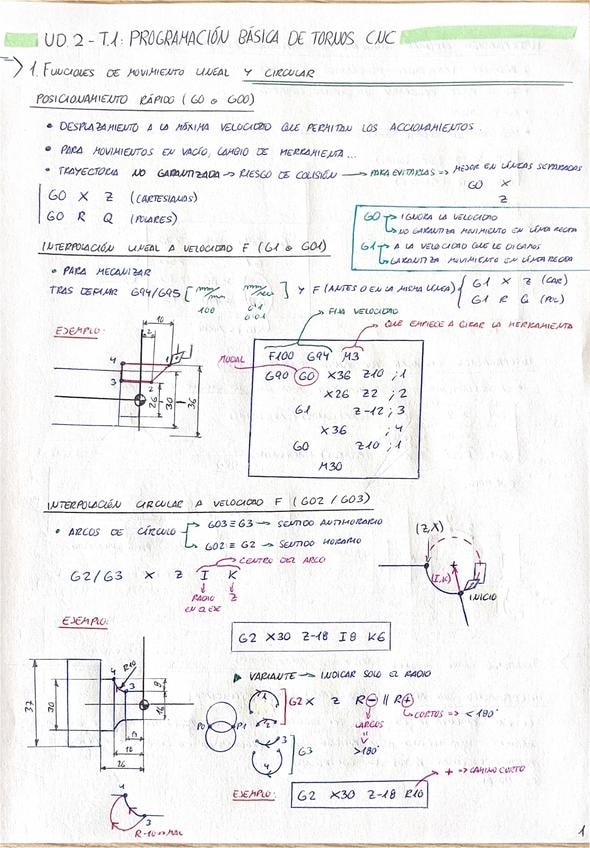 UD.2 - T.1: PROGRAMACIÓN BÁSICA DE TORNOS CNC
1. FUNCIONES DE MOVIMIENTO LINEAL Y CIRCULAR
POSICIONAMIENTO RÁPIDO (G0 o G00)
• DESPLAZAMIENTO A LA MÁXIMA VELOCIDAD QUE PERMITAN LOS ACCIONAMIENTOS.
• PARA MOVIMIENTOS EN VACÍO, CAMBIO DE HERRAMIENTA...
• TRAYECTORIA NO GARANTIZADA → RIESGO DE COLISIÓN → PARA EVITARLAS => MEJOR EN LÍNEAS SEPARADAS
G0 X
Z
G0 X Z (CARTESIANAS)
G0 R Q (POLARES)
G0 → IGNORA LA VELOCIDAD
→ NO GARANTIZA MOVIMIENTO EN LÍNEA RECTA
G1 → A LA VELOCIDAD QUE LE DIGAMOS
→ GARANTIZA MOVIMIENTO EN LÍNEA RECTA
INTERPOLACIÓN LINEAL A VELOCIDAD F (G1 o G01)
• PARA MECANIZAR
TRAS DEFINIR G94/G95 [mm/m mm/rev] Y F (ANTES O EN LA MISMA LÍNEA) { G1 X Z (CAR)
G1 R Q (POL)
100 0'1
0'01
→ FIJA VELOCIDAD
→ QUE EMPIECE A GIRAR LA HERRAMIENTA
EJEMPLO:
10
2
4 1
3 2
26 30 36
MODAL
F100 G94 M3
G90 G0 X36 Z10 ; 1
X26 Z2 ; 2
G1 Z-12 ; 3
X36 ; 4
G0 Z10 ; 1
M30
INTERPOLACIÓN CIRCULAR A VELOCIDAD F (G02 / G03)
• ARCOS DE CÍRCULO → G03 ≡ G3 → SENTIDO ANTIHORARIO
→ G02 ≡ G2 → SENTIDO HORARIO
→ CENTRO DEL ARCO
G2/G3 X Z I K
RADIO Z
EN EL EJE
(Z,X)
(I,K)
INICIO
EJEMPLO:
G2 X30 Z-18 I8 K6
▶ VARIANTE → INDICAR SOLO EL RADIO
G2 X Z R⊖ || R⊕
LARGOS
>180°
CORTOS => < 180°
P0 P1
1
2
3
4
G3
37
30
R10
4
3
8
16
18
26
EJEMPLO:
G2 X30 Z-18 R10
+ → CAMINO CORTO
4
3
R-10 => MAL
1